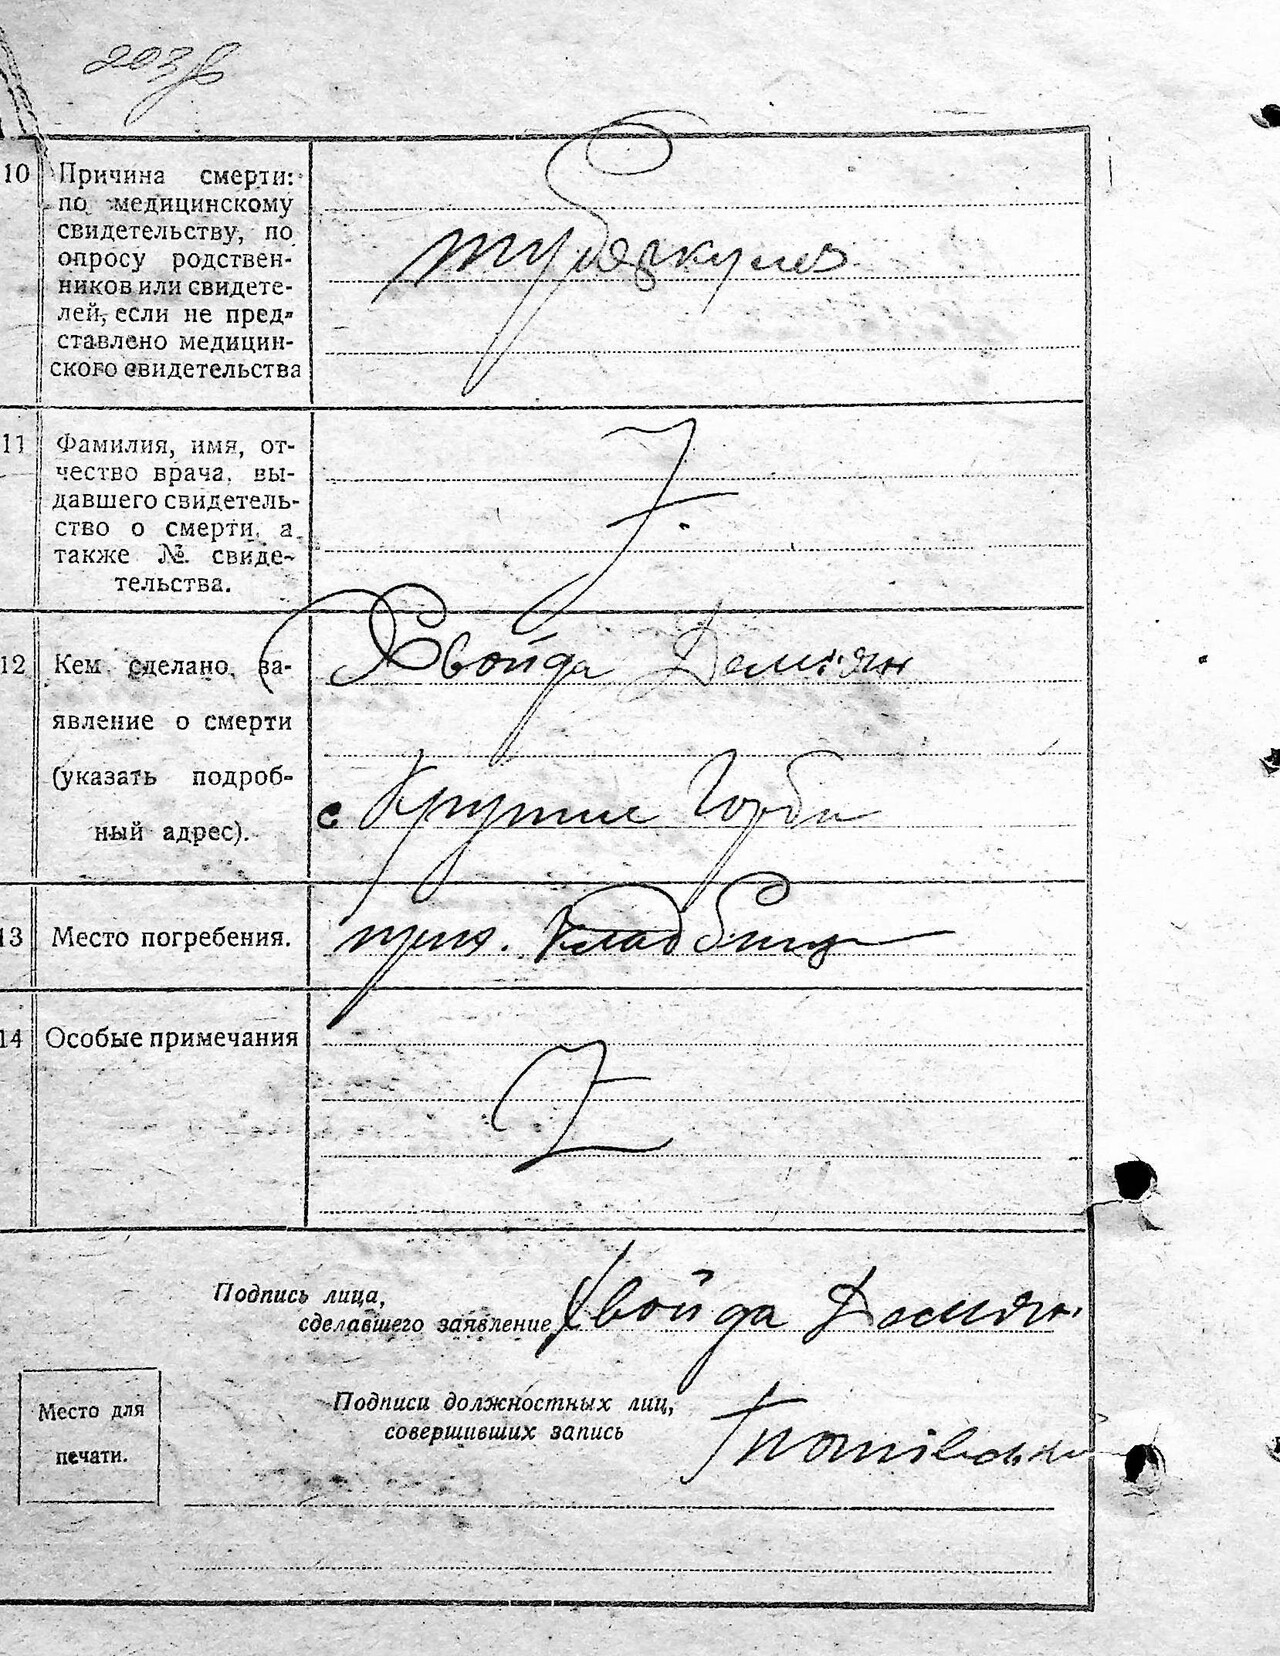 10 Причина смерти:
по медицинскому
свидетельству, по
опросу родствен-
ников или свидете-
лей, если не пред-
ставлено медицин-
ского свидетельства
туберкулез
11 Фамилия, имя, от-
чество врача, вы-
давшего свидетель-
ство о смерти, а
также №. свиде-
тельства.
12 Кем сделано за-
явление о смерти
(указать подроб-
ный адрес).
Хвойда Демян
с Крутые Горби
13 Место погребения.
кладбище
14 Особые примечания
Подпись лица,
сделавшего заявление Хвойда Демян.
Подписи должностных лиц,
совершивших запись
Место для
печати.